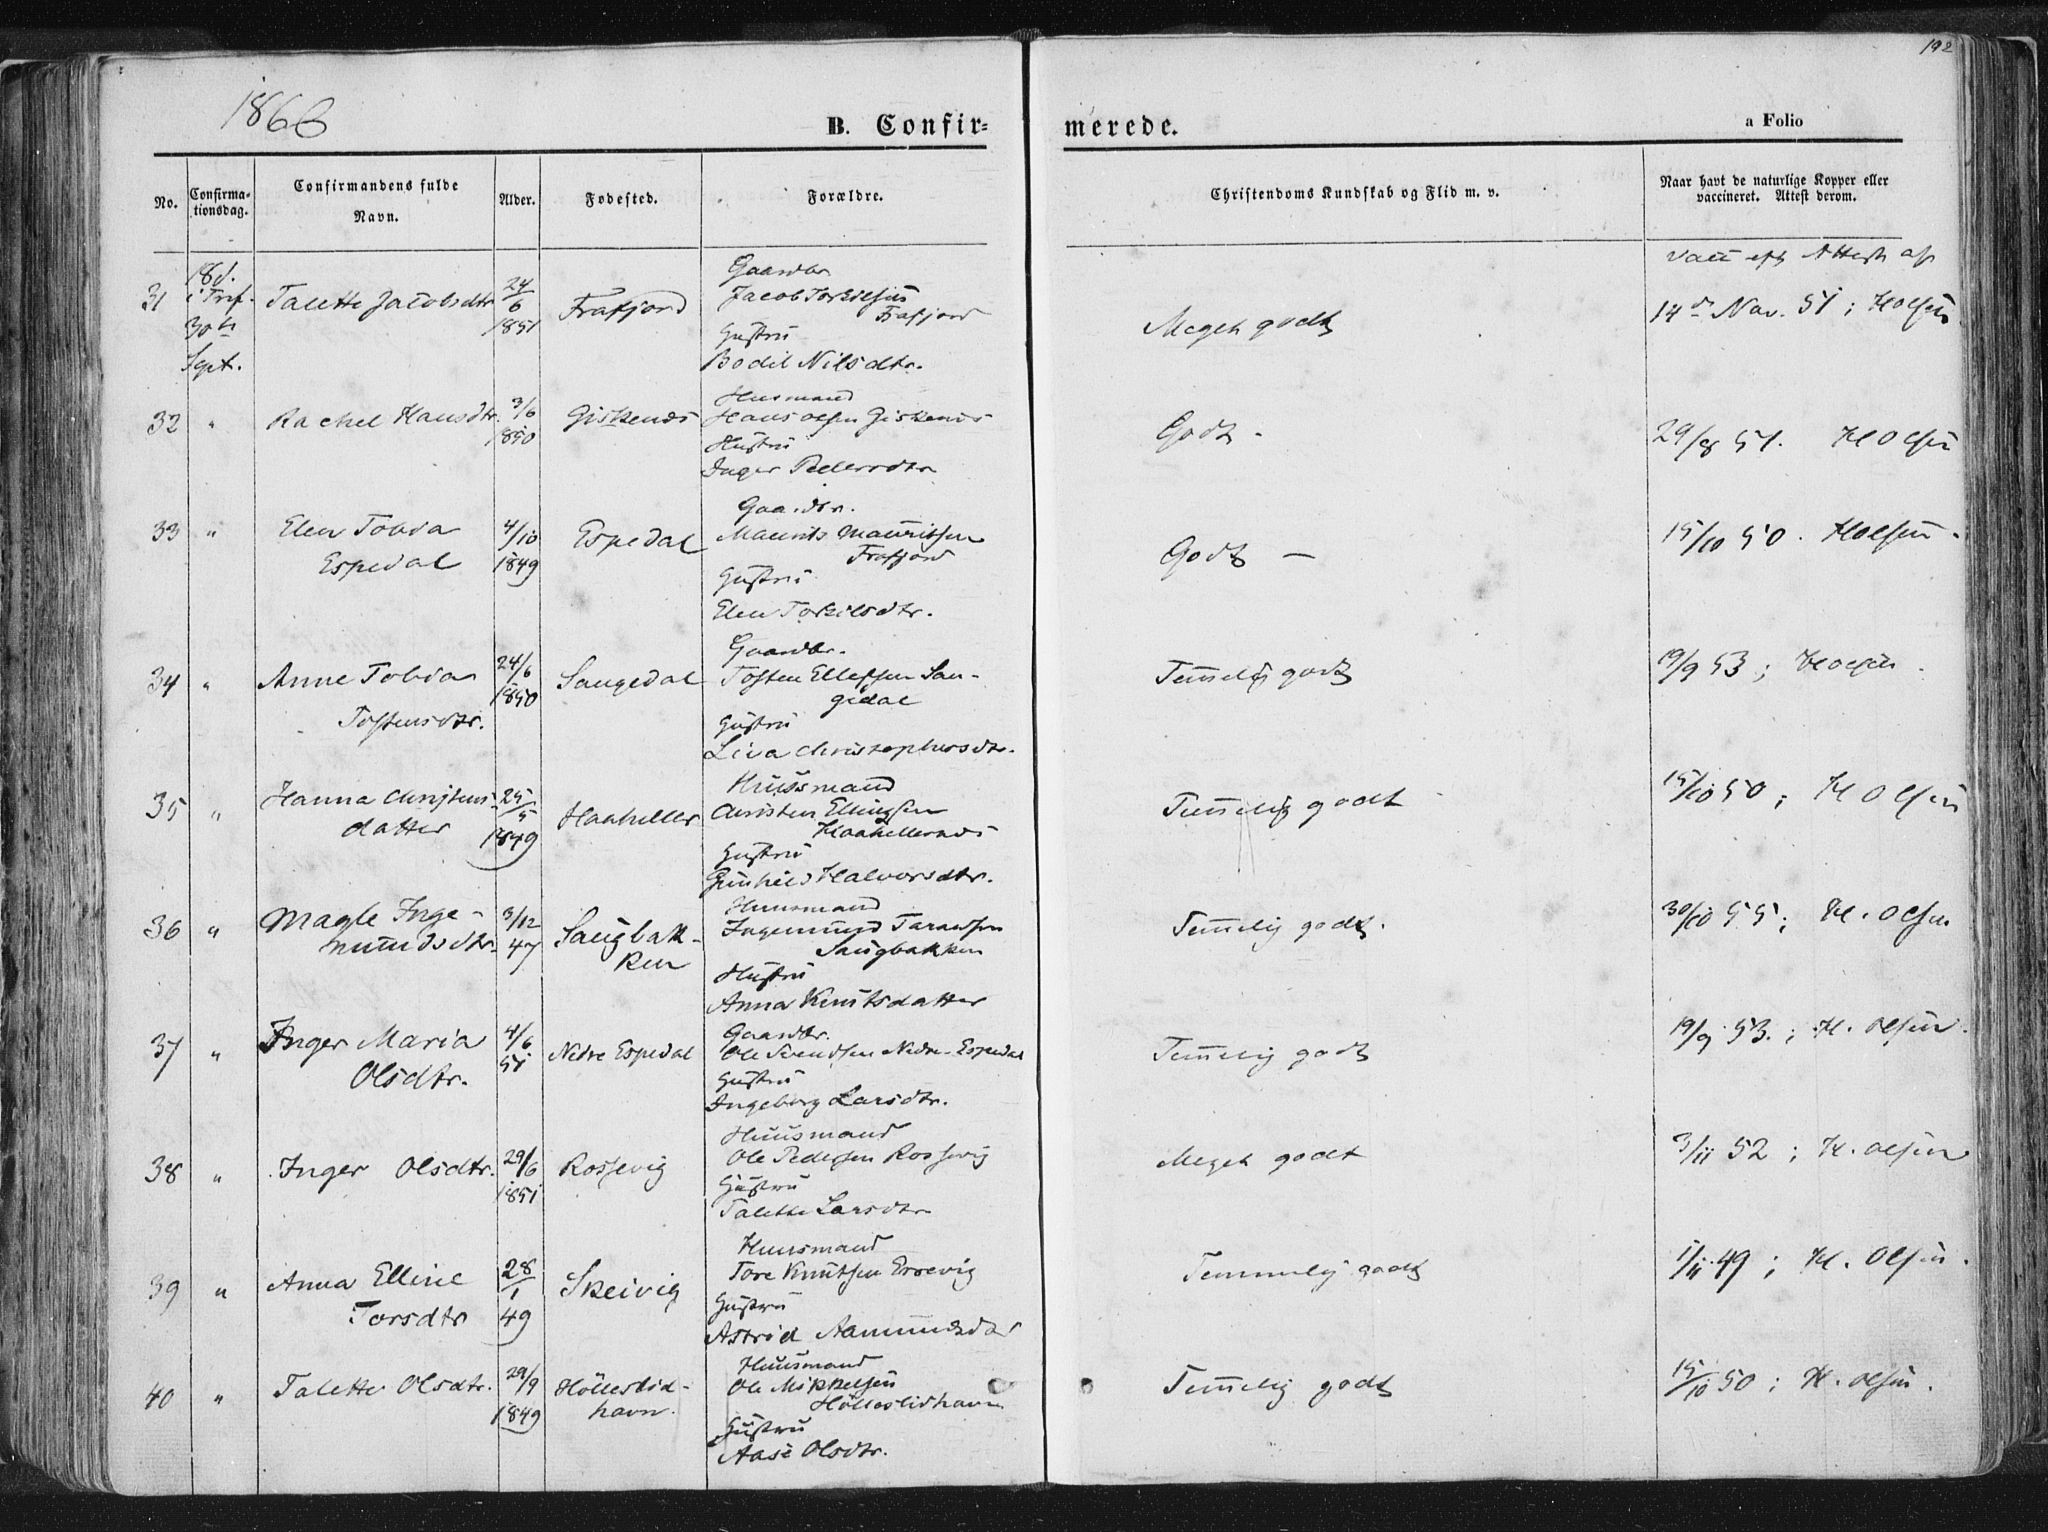 192
1866
B. Confir=
merede.
a Folio
No.
Confirma-
tionsdag.
Confirmandens fulde
Navn.
Alder.
Fødested.
Forældre.
Christendoms Kundskab og Flid m. v.
Naar havt de naturlige Kopper eller
vaccineret. Attest derom.
31 18d. i Fraf. 30te Sept.
Talette Jacobsdtr
24/6 1851
Frafjord
Gaardbr
Jacob Torkilsen
Frafjord
Hustru
Bodil Nilsdtr.
Meget godt
Vacc eft Attest af
14de Nov. 51; H Olsen
32 "
Rachel Hansdtr.
3/6 1850
Giskenæs
Husmand
Hans Olsen Giskenæs
Hustru
Inger Pedersdtr
Godt -
29/8 51. H Olsen
33 "
Elen Tobia
Espedal
4/10 1849
Espedal
Gaardbr.
Maurits Mauritsen
Frafjord
Hustru
Elen Torkilsdtr.
Godt —
15/10 50. H Olsen.
34 "
Anne Tobia
Tostensdtr.
24/6 1850
Saugedal
Gaardbr.
Tosten Ellefsen Sau-
gedal
Hustru
Liva Christophersdtr.
Temelig godt
19/9 53; H Olsen.
35 "
Hanna Christens-
datter
25/5 1849
Haaheller
Huusmand
Christen Ellingsen
Haahellernæs
Hustru
Gunhild Halvorsdtr.
Temelig godt
15/10 50; H Olsen
36 "
Magle Inge-
mundsdtr.
3/12 47
Saugbak-
ken
Huusmand
Ingemund Taraldsen
Saugbakken
Hustru
Anna Knutsdatter
Temelig godt.
30/10 55; H. Olsen
37 "
Inger Maria
Olsdtr.
4/6 51
Nedre Espedal
Gaardbr.
Ole Svendsen Nedre-Espedal
Hustru
Ingeborg Larsdtr.
Temelig godt
19/9 53.; H. Olsen.
38 "
Inger Olsdtr.
29/6 1851
Rossevig
Huusmand
Ole Pedersen Rossevig
Hustru
Talette Larsdtr
Meget godt
3/11 52; H. Olsen
39 "
Anna Elline
Torsdtr
28/1 49
Skeivig
Huusmand
Tore Knutsen Ersevig
Hustru
Astrid Aamundsdtr
Temmelig godt
1/11 49; H. Olsen.
40 "
Talette Olsdtr.
29/9 1849
Hölleslid-
havn.
Huusmand
Ole Mikkelsen
Hölleslidhavn
Hustru
Aase Olsdtr.
Temelig godt
15/10 50; H. Olsen.